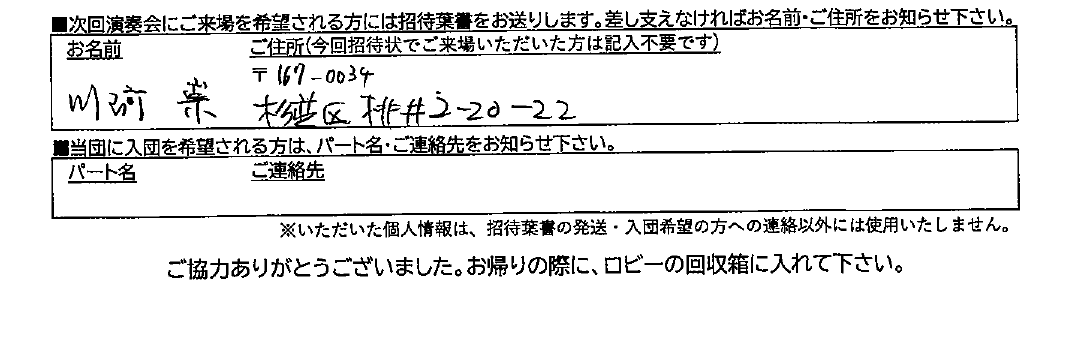 ■次回演奏会にご来場を希望される方には招待葉書をお送りします。差し支えなければお名前・ご住所をお知らせ下さい。
お名前 ご住所(今回招待状でご来場いただいた方は記入不要です)
〒167-0034
杉並区桃井2-20-22
■当団に入団を希望される方は、パート名・ご連絡先をお知らせ下さい。
パート名 ご連絡先
※いただいた個人情報は、招待葉書の発送・入団希望の方への連絡以外には使用いたしません。
ご協力ありがとうございました。お帰りの際に、ロビーの回収箱に入れて下さい。